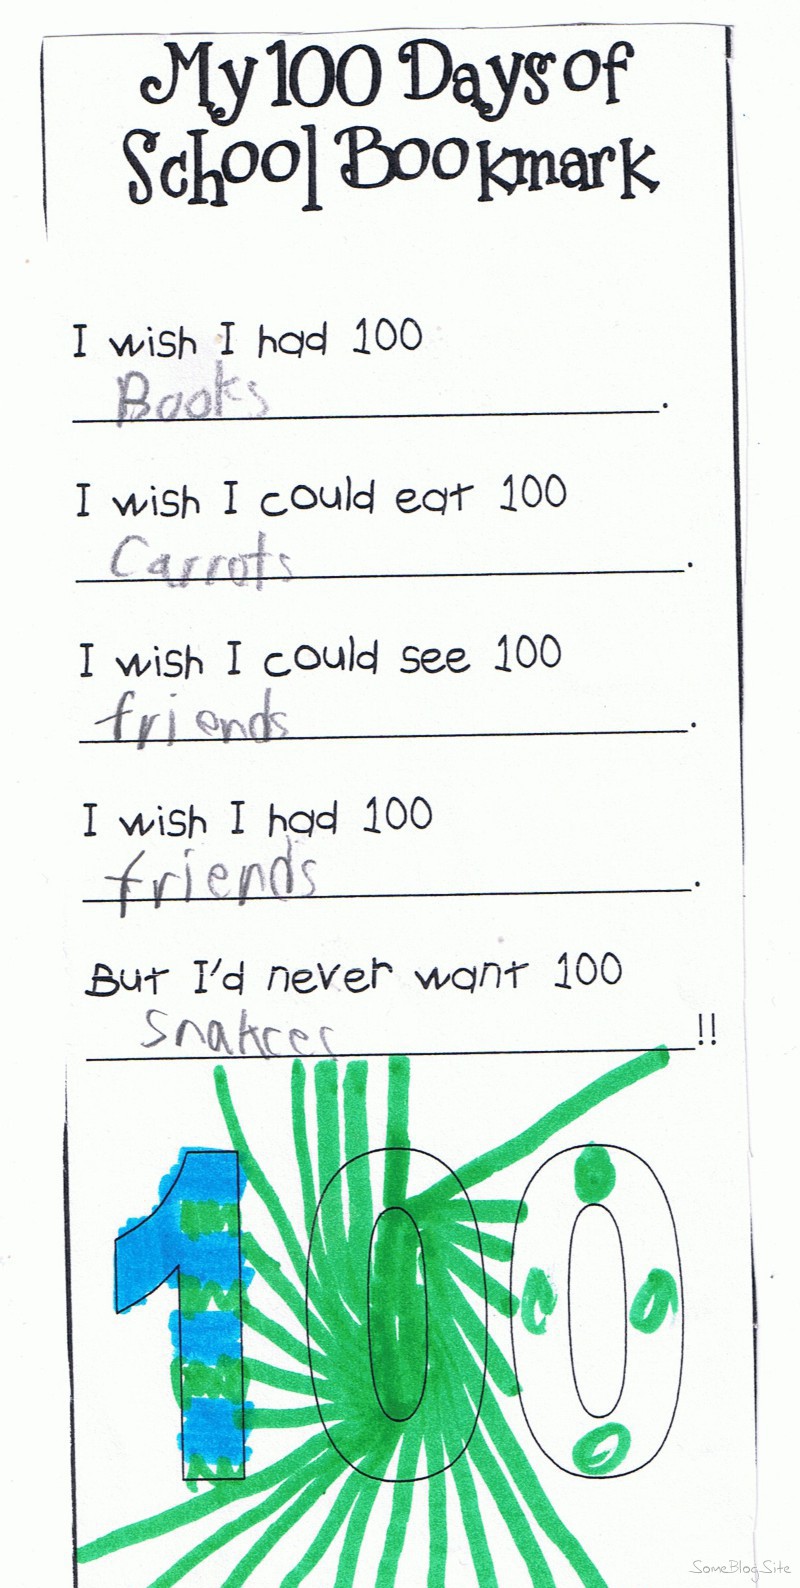 My 100 Days of
School Bookmark
I wish I had 100
Books.
I wish I could eat 100
Carrots.
I wish I could see 100
friends.
I wish I had 100
friends.
But I'd never want 100
Snakces!!
100
SomeBlogSite